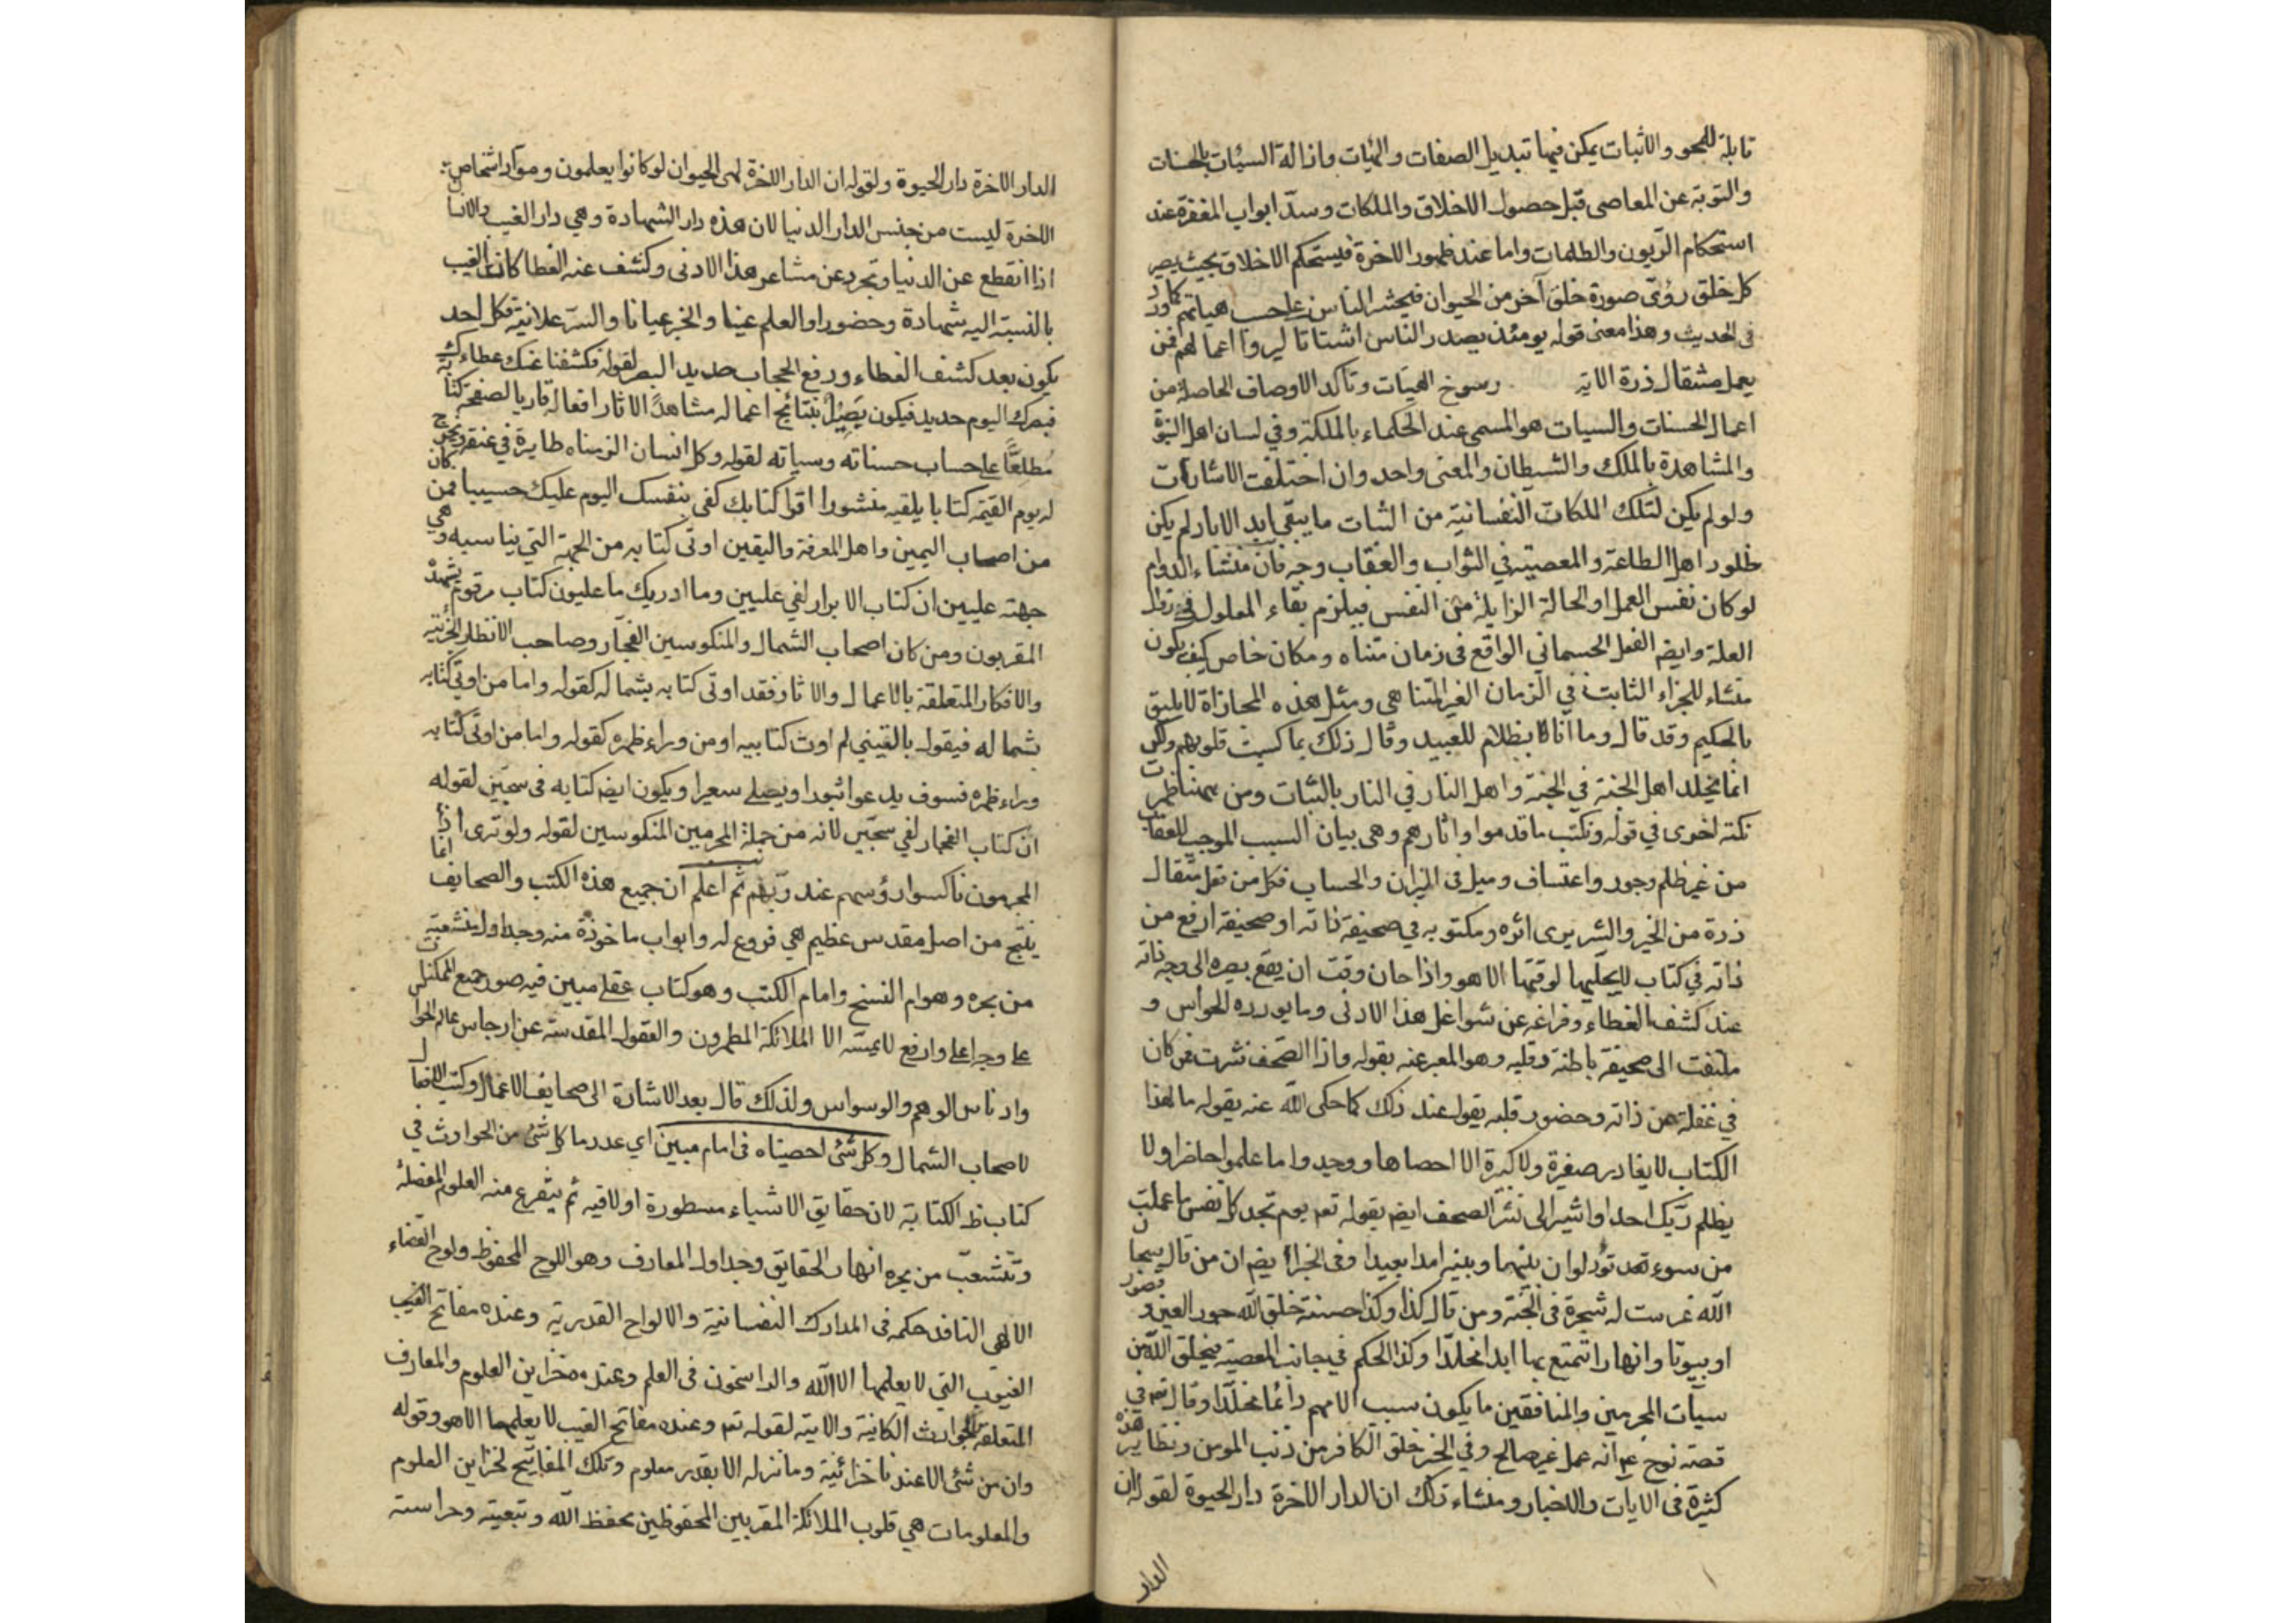 قابلة للمحو والاثبات يمكن فيها تبديل الصفات والهيات وازالة السيئات بالحسنات
والتوبة عن المعاصى قبل حصول الاخلاق والملكات وسدّ ابواب المغفرة عند
استحكام الريون والظلمات واما عند ظهور الاخرة فيستحكم الاخلاق بحيث يصير
كل خلق صورة خلق آخر من الحيوان فيحشر الناس على حسب هياتهم كما ورد
فى الحديث وهذا معنى قوله يومئذ يصدر الناس اشتاتا ليروا اعمالهم فمن
يعمل مثقال ذرة الاية رسوخ الهيات وتاكد الاوصاف الحاصلة من
اعمال الحسنات والسيات هو المسمى عند الحكماء بالملكة وفي لسان اهل النبوة
والمشاهدة بالملك والشيطان والمعنى واحد وان اختلفت الاشارات
ولو لم يكن لتلك الملكات النفسانية من الثبات ما يبقى ابد الاباد لم يكن
خلود اهل الطاعة والمعصية في الثواب والعقاب وجه فان منشاء الدوام
لو كان نفس العمل او الحالة الزايلة من النفس فيلزم بقاء المعلول في زوال
العلة وايضا الفعل الجسماني الواقع فى زمان متناه ومكان خاص كيف يكون
منشاء للجزاء الثابت في الزمان الغير المتناهى ومثل هذه المجازاة لا يليق
بالحكيم وقد قال وما انا بظلام للعبيد وقال ذلك بما كسبت قلوبهم ولكن
انما يخلد اهل الجنة في الجنة واهل النار في النار بالثبات ومن ههنا ظهرت
نكتة اخرى في قوله ونكتب ما قدموا واثارهم وهى بيان السبب الموجب للعقاب
من غير ظلم وجور واعتساف وميل فى الميزان والحساب فكل من فعل مثقال
ذرة من الخير والشر يرى اثره ومكتوبه في صحيفة ذاته او صحيفة ارفع من
ذاته في كتاب لا يجليها لوقتها الا هو واذا حان وقت ان يقع بصره الى وجه ذاته
عند كشف الغطاء وفراغه عن شواغل هذا الادنى وما يورده الحواس و
ملتفت الى صحيفة باطنه وقلبه وهو المعبر عنه بقوله واذا الصحف نشرت فمن كان
في غفلة عن ذاته وحضور قلبه يقول عند ذلك كما حكى الله عنه بقوله ما لهذا
الكتاب لا يغادر صغيرة ولا كبيرة الا احصاها ووجدوا ما عملوا حاضرا ولا
يظلم ربك احدا واشير الى نشر الصحف ايضا بقوله تعم يوم تجد كل نفس ما عملت
من سوء تود لو ان بينها وبينه امدا بعيدا وفى الخبر ايضا ان من قال سبحان
الله غرست له شجرة فى الجنة ومن قال كذا وكذا حسنة خلق الله حور العين و قصور
او بيوتا وانهارا تتمتع بها ابدا مخلدا وكذا الحكم في جانب المعصية فيخلق الله من
سيآت المجرمين والمنافقين ما يكون سبب الامهم دائما مخلدا وقال تعم في
قصة نوح ع انه عمل غير صالح وفي الخبر خلق الكافر من ذنب المومن ونظاير هذه
كثيرة فى الايات والاخبار ومنشاء ذلك ان الدار الاخرة دار الحيوة لقوله ان
الدار
الدار الاخرة دار الحيوة ولقوله ان الدار الاخرة لهى الحيوان لو كانوا يعلمون ومواد اشخاص
الاخرة ليست من جنس الدار الدنيا لان هذه دار الشهادة وهي دار الغيب والانسان
اذا انقطع عن الدنيا وتجرد عن مشاعر هذا الادنى وكشف عنه الغطا كان الغيب
بالنسبة اليه شهادة وحضورا والعلم عينا والخبر عيانا والسر علانية فكل احد
يكون بعد كشف الغطاء ورفع الحجاب حديد البصر لقوله فكشفنا عنك غطاءك
فبصرك اليوم حديد فيكون بصيرا بنتائج اعماله مشاهدا لاثار افعاله قاريا لصفحة كتابه
مطلعا على حساب حسناته وسياته لقوله وكل انسان الزمناه طايره في عنقه ونخرج
له يوم القيمة كتابا يلقيه منشورا اقرا كتابك كفى بنفسك اليوم عليك حسيبا فمن كان
من اصحاب اليمين واهل المعرفة واليقين اوتى كتابه من الجهة التي يناسبه وهي
جهته عليين ان كتاب الابرار لفي عليين وما ادريك ما عليون كتاب مرقوم يشهده
المقربون ومن كان اصحاب الشمال والمنكوسين الفجار وصاحب الانظار الجزئية
والافكار المتعلقة بالاعمال والاثار فقد اوتى كتابه بشماله كقوله واما من اوتى كتابه
بشماله فيقول ياليتني لم اوت كتابيه او من وراء ظهره كقوله واما من اوتى كتابه
وراء ظهره فسوف يدعوا ثبورا ويصلى سعيرا ويكون ايضا كتابه فى سجين لقوله
ان كتاب الفجار لفي سجين لانه من جملة المجرمين المنكوسين لقوله ولو ترى اذ
المجرمون ناكسوا رؤسهم عند ربهم ثم اعلم ان جميع هذه الكتب والصحايف انما
ينتج من اصل مقدس عظيم هي فروع له وابواب ماخوذة منه وجداول منشعبة
من بحره وهو ام النسخ وامام الكتب وهو كتاب عقلى مبين فيه صور جميع الممكنات
على وجه اعلى وارفع لا يمسه الا الملائكة المطهرون والعقول المقدسة عن ارجاس عالم الحواس
وادناس الوهم والوسواس ولذلك قال بعد الاشارة الى صحايف الاعمال وكتب الافعال
لاصحاب الشمال وكل شئ احصيناه فى امام مبين اي عدد ما كل شئ من الحوادث في
كتاب الكتابة لان حقايق الاشياء مسطورة اولا فيه ثم يتفرع منه العلوم المفصلة
وتنشعب من بحره انهار الحقايق وجداول المعارف وهو اللوح المحفوظ ولوح القضاء
الالهى النافذ حكمه فى المدارك النفسانية والالواح القدرية وعنده مفاتح الغيب
الغيوب التي لا يعلمها الا الله والراسخون فى العلم وعنده خزاين العلوم والمعارف
المتعلقة بالحوادث الكائنة والاتية لقوله تعم وعنده مفاتح الغيب لا يعلمها الا هو وقوله
وان من شئ الا عندنا خزائنه وما ننزله الا بقدر معلوم وتلك المفاتيح لخزاين العلوم
والمعلومات هي قلوب الملائكة المقربين المحفوظين بحفظ الله وتبعيته وحراسته